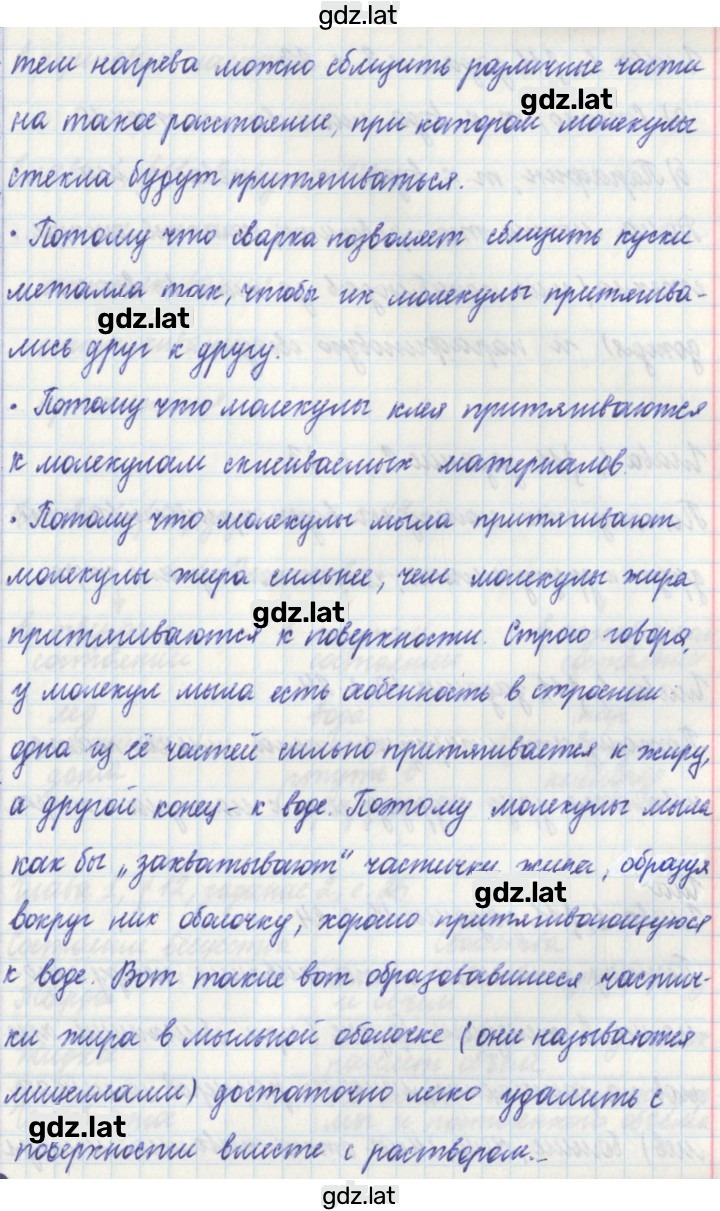 gdz.lat
тем нагрева можно сблизить различные части
gdz.lat
на такое расстояние, при котором молекулы
стекла будут притягиваться.
· Потому что сварка позволяет сблизить куски
металла так, чтобы их молекулы притягива-
gdz.lat
лись друг к другу.
· Потому что молекулы клея притягиваются
к молекулам склеиваемых материалов.
· Потому что молекулы мыла притягивают
молекулы жира сильнее, чем молекулы жира
gdz.lat
притягиваются к поверхности. Строго говоря,
у молекул мыла есть особенность в строении:
одна из её частей сильно притягивается к жиру,
а другой конец - к воде. Поэтому молекулы мыла
как бы „захватывают“ частички жира, образуя
gdz.lat
вокруг них оболочку, хорошо притягивающуюся
к воде. Вот такие вот образовавшиеся частич-
ки жира в мыльной оболочке (они называются
мицеллами) достаточно легко удалить с
gdz.lat
поверхности вместе с раствором.
gdz.lat